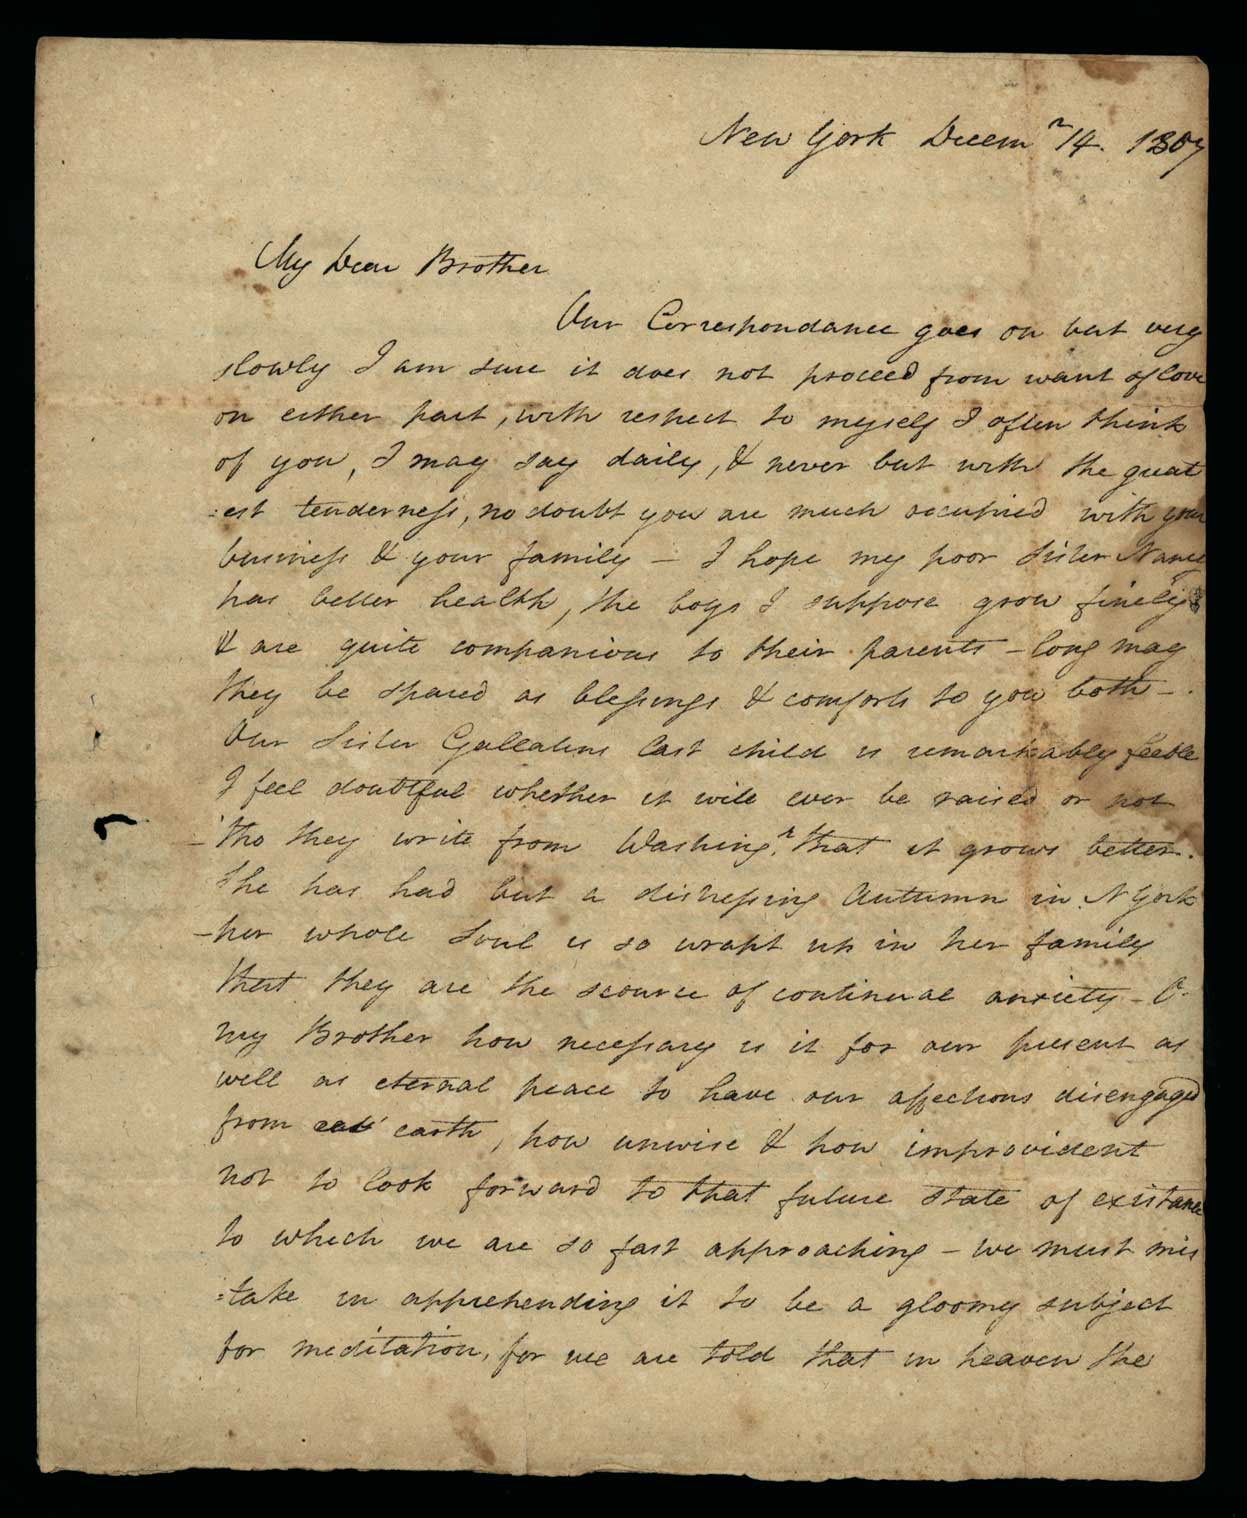 New York Decem r 14. 1807
My Dear Brother
Our Correspondance goes on but very
slowly I am sure it does not proceed from want of love
on either part, with respect to myself I often think
of you, I may say daily, & never but with the great
:est tenderness, no doubt you are much occupied with your
business & your family – I hope my poor Sister Nancy
has better health, the boys I suppose grow finely
& are quite companions to their parents – long may
they be spared as blessings & comforts to you both –.
Our Sister Gallatins last child is remarkably feeble
I feel doubtful whether it will ever be raised or not
– 'tho they write from Washing.n that it grows better.
She has had but a distressing Autumn in N York
– her whole Soul is so wrapt up in her family
that they are the scource of continual anxiety – O
my Brother how necessary is it for our present as
well as eternal peace to have our affections disengaged
from eat earth, how unwise & how improvident
not to look forward to that future state of existance
to which we are so fast approaching – we must mis
:take in apprehending it to be a gloomy subject
for meditation, for we are told that in heaven the